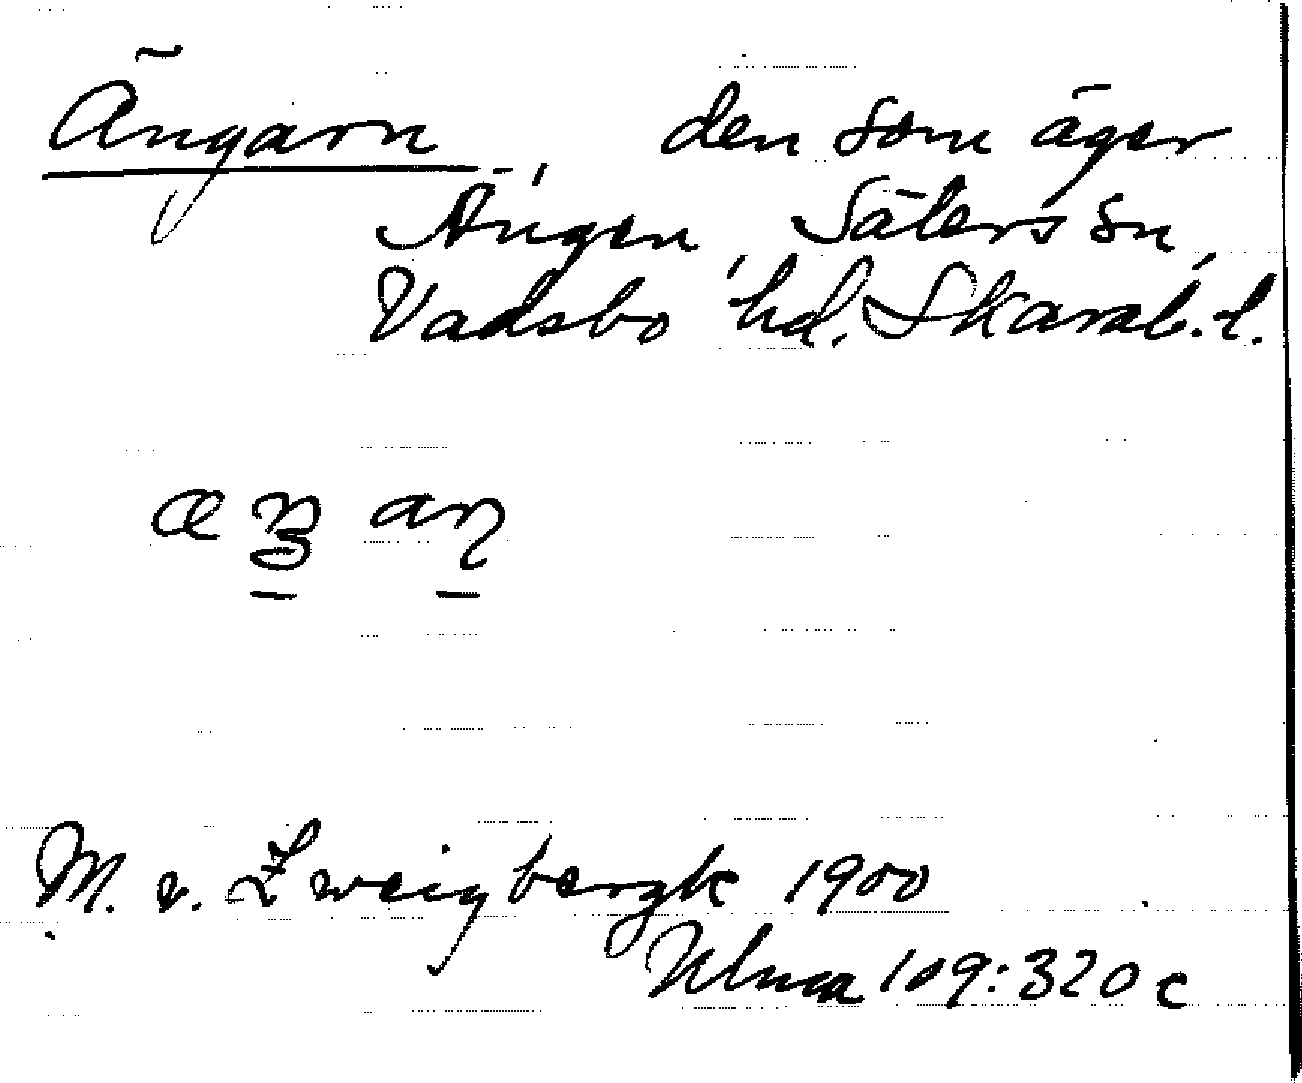 Ängarn den som äger
Ängen, Säters sn,
Vadsbo hd. Skarab. l.
æŋ aɳ
M. v. Zweigbergk 1900
Ulma 109:320 c